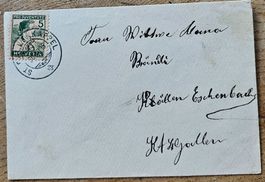 PRO JUVENTUTE
5
HELVETIA
Frau Witwe Anna
Brändli
Eschenbach
Kt. St. Gallen